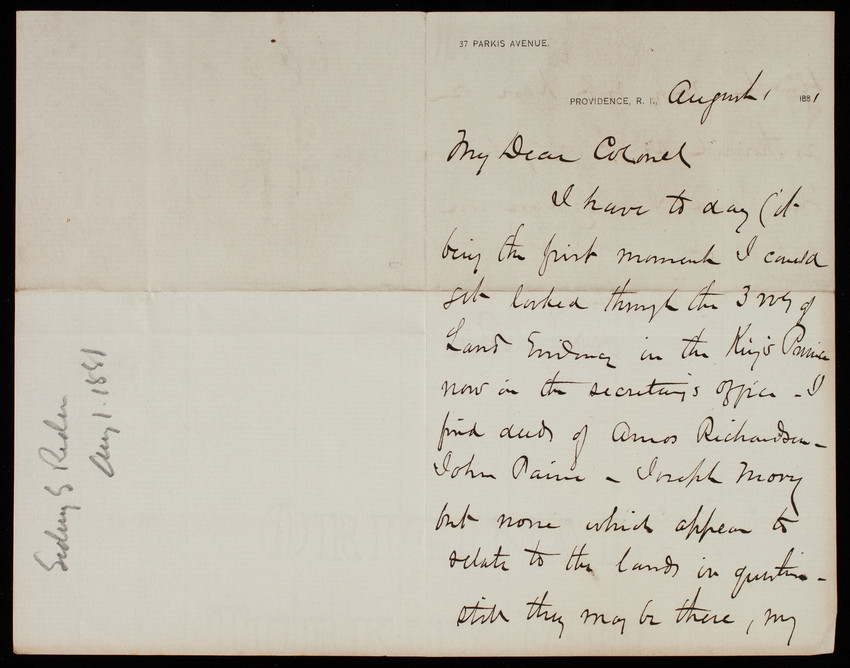 Sidney S Rider
Aug 1. 1881
37 PARKIS AVENUE.
PROVIDENCE, R. I., August 1 1881
My Dear Colonel
I have to day (it
being the first moment I could
get looked through the 3 vols of
Land Evidence in the King's Province
now in the secretarys office - I
find deeds of Amos Richardson -
John Paine - Joseph Mory
but none which appear to
relate to the lands in question -
still they may be there, my